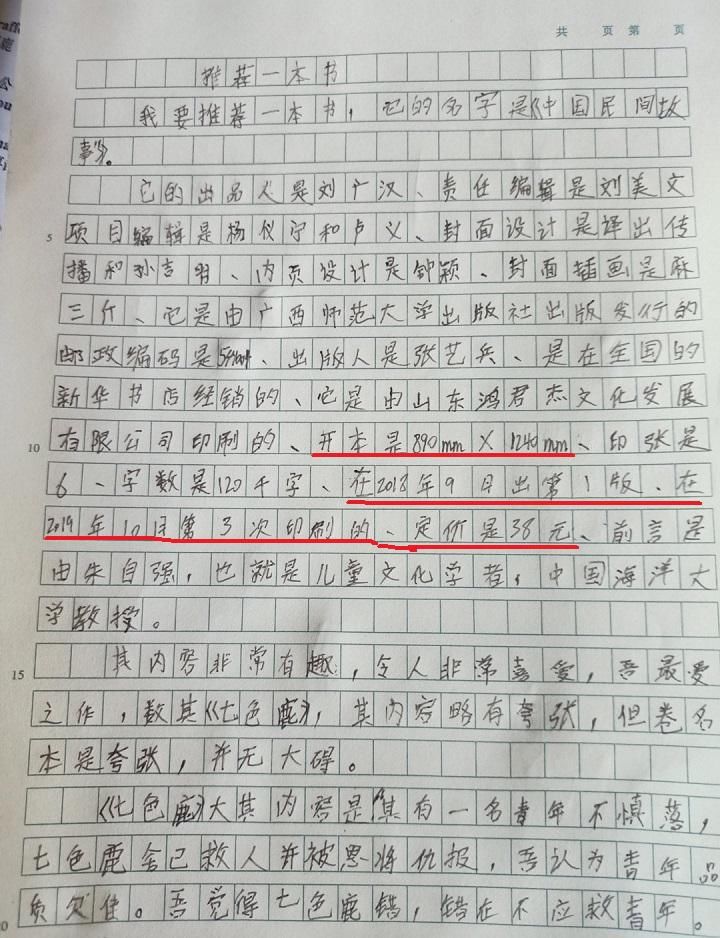 共 页 第 页
推荐一本书
我要推荐一本书，它的名字是《中国民间故
事》。
它的出品人是刘广汉、责任编辑是刘美文
5 项目编辑是杨仪宁和卢义、封面设计是译出传
播和孙吉明、内页设计是钟颖、封面插画是麻
三斤、它是由广西师范大学出版社出版发行的
邮政编码是541001、出版人是张艺兵、是在全国的
新华书店经销的、它是由山东鸿君杰文化发展
10 有限公司印刷的、开本是890mm×1240mm、印张是
6、字数是120千字、在2018年9月出第1版、在
2019年10月第3次印刷的、定价是38元、前言是
由朱自强，也就是儿童文化学者，中国海洋大
学教授。
15 其内容非常有趣，令人非常喜爱，吾最爱
之作，数其《七色鹿》，其内容略有夸张，但卷名
本是夸张，并无大碍。
《七色鹿》大其内容是"其有一名青年不慎落，
七色鹿舍己救人并被恩将仇报，吾认为青年品
质欠佳。吾觉得七色鹿错，错在不应救青年。